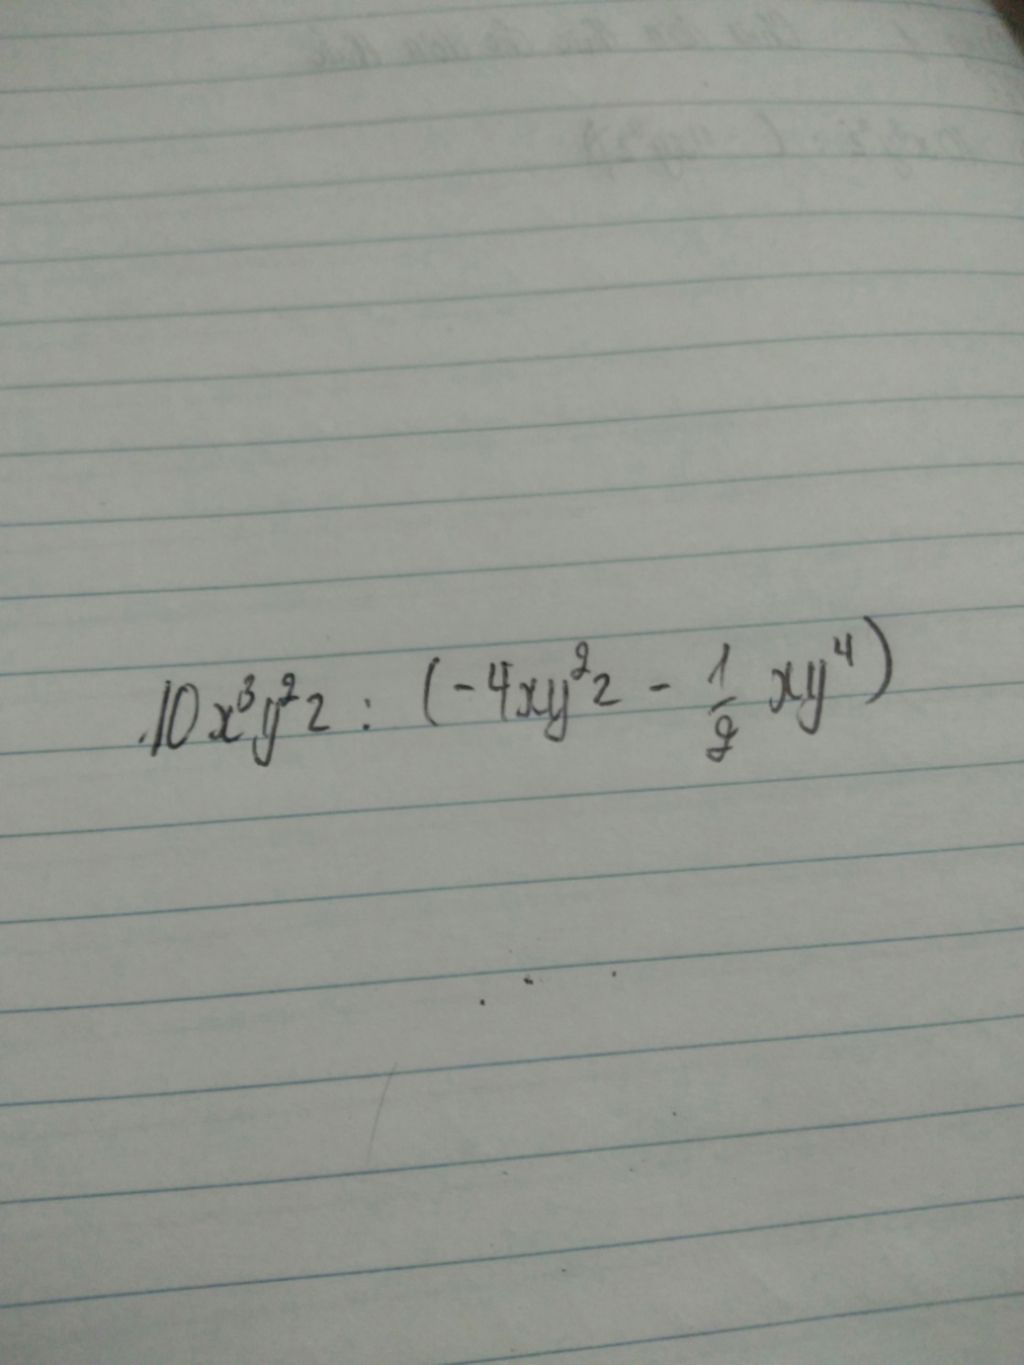 10x³y²z : (-4xy²z - 1/2 xy⁴)